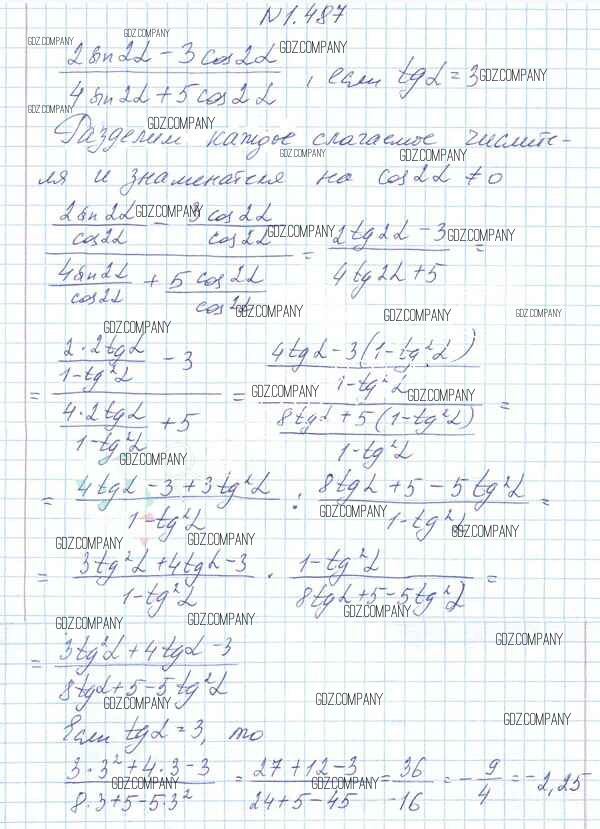 N 1.487
(2 sin2α - 3 cos2α)/(4 sin2α + 5 cos2α), если tgα = 3
Разделим каждое слагаемое числите-
ля и знаменателя на cos2α ≠ 0
(2sin2α/cos2α - 3cos2α/cos2α)/(4sin2α/cos2α + 5cos2α/cos2α) = (2tg2α - 3)/(4tg2α + 5) =
= (2·2tgα/(1-tg²α) - 3)/(4·2tgα/(1-tg²α) + 5) = ((4tgα - 3(1-tg²α))/(1-tg²α))/((8tgα + 5(1-tg²α))/(1-tg²α)) =
= (4tgα - 3 + 3tg²α)/(1-tg²α) : (8tgα + 5 - 5tg²α)/(1-tg²α) =
= (3tg²α + 4tgα - 3)/(1-tg²α) · (1-tg²α)/(8tgα + 5 - 5tg²α) =
= (3tg²α + 4tgα - 3)/(8tgα + 5 - 5tg²α)
Если tgα = 3, то
(3·3² + 4·3 - 3)/(8·3 + 5 - 5·3²) = (27 + 12 - 3)/(24 + 5 - 45) = 36/-16 = -9/4 = -2,25
GDZ.COMPANY